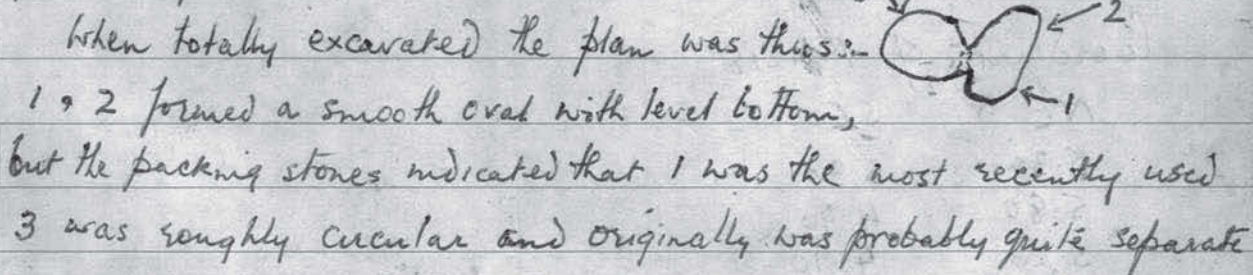 When totally excavated the plan was thus:-
2
1 , 2 formed a smooth oval with level bottom,
1
but the packing stones indicated that 1 was the most recently used
3 was roughly circular and originally was probably quite separate